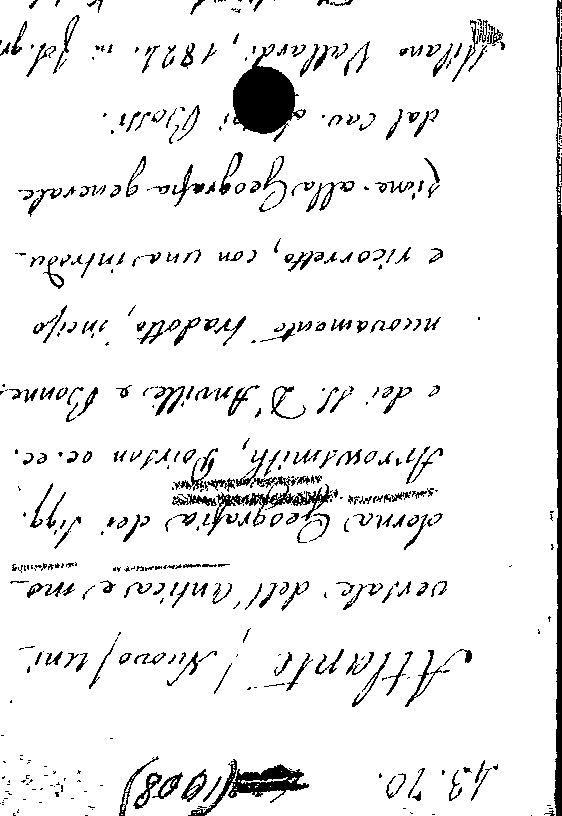 43.70. (1008)
Atlante / Nuovo / uni-
versale dell'Antica e mo-
derna Geografia dei Sigg.
Arrowsmith, Poirson ec. ec.
e dei SS. D'Anville e Bonne
nuovamente tradotto, inciso
e ricorretto, con una introdu-
zione alla Geografia generale
dal cav. Bossi.
Milano Vallardi, 1824. in fol. gr